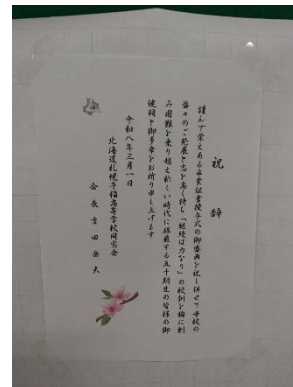 祝辞
謹んで栄えある卒業証書授与式の御盛典を祝し併せて母校の
益々のご発展と志を高く持ち「継続は力なり」の校訓を胸に刻
み困難を乗り越え新しい時代に雄飛する五十期生の皆様の御
健闘と御多幸をお祈り申し上げます
令和八年三月一日
北海道札幌手稲高等学校同窓会
会長吉田